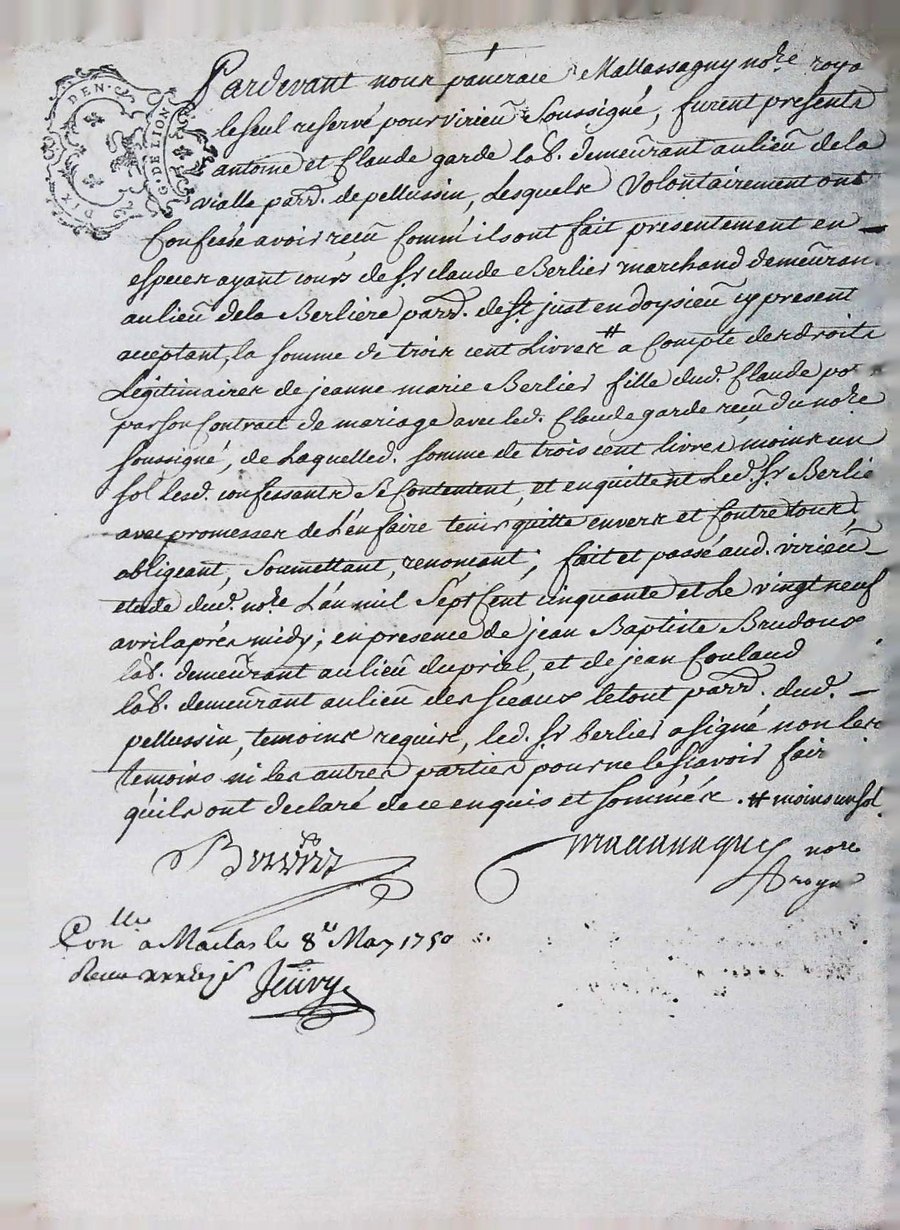 DEN.
G. DE LION
Pardevant nous pancrace Mallassagny no.re roya
le seul reservé pour virieu soussigné, furent presents
antoine et Claude garde lab. demeurant au lieu de la
vialle parr. de pellussin, Lesquels Volontairement ont
Confessé avoir recu Comm'ils ont fait presentement en
especes ayant cours de Sr claude Berlier marchand demeuran
au lieu de la Berliere parr. de St just en doysieu cy present
acceptant, la somme de trois cent Livres # a Compte des droits
Légitimaires de jeanne marie Berlier fille dud. Claude po
par son Contrat de mariage avec led. Claude garde recu du no.re
soussigné, de Laquelled. somme de trois cent livres moins un
sol lesd. confessants se Contentent, et en quittent Led. Sr Berlie
avec promesses de L'en faire tenir quitte envers et Contre tous,
obligeant, soumettant, renoncant; fait et passé aud. virieu
etude dud. no.re L'an mil Sept Cent cinquante et Le vingt neuf
avril après midy; en presence de jean Baptiste Brudoux
lab. demeurant au lieu du priel, et de jean Coulaud
lab. demeurant au lieu des sceaux le tout parr. dud.
pellussin, temoins requis, led. Sr berlier a signé non les
temoins ni les autres parties pour ne le scavoir fair
quils ont declaré de ce enquis et sommés. # moins un sol
Berlier no.re
roya
Con.lle a Maclas le 8.e May 1750
Recu